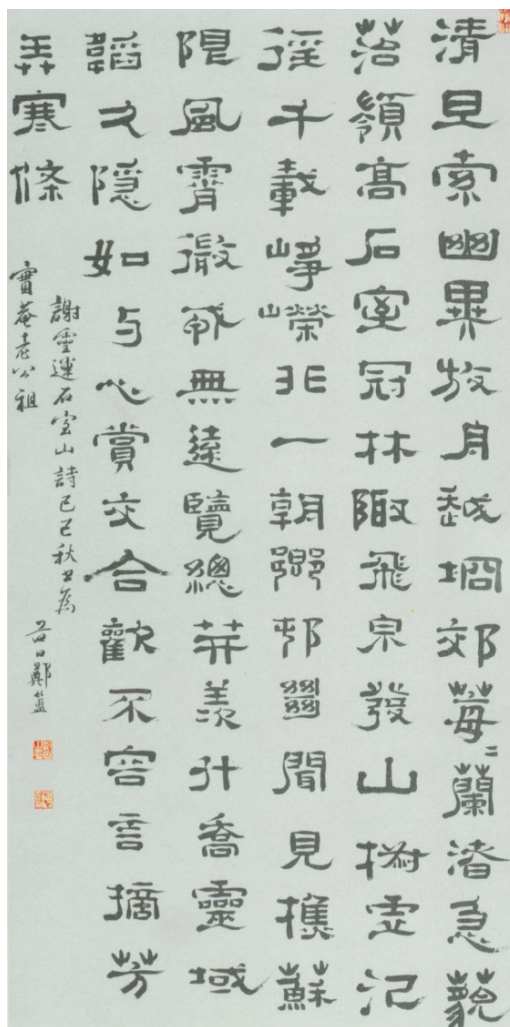 清旦索幽異放舟越坰郊莓〻蘭渚急藐
苔嶺高石室冠林陬飛泉發山椒虛汜
徑千載崢嶸非一朝鄉邨𢇍聞見樵蘇
限風霄微戎無遠覽總笄羨升喬靈域
韜久隱如与心賞交合歡不容言摘芳
弄寒條
謝靈運石室山詩己巳秋日為
寶菴老公祖 谷口鄭簠